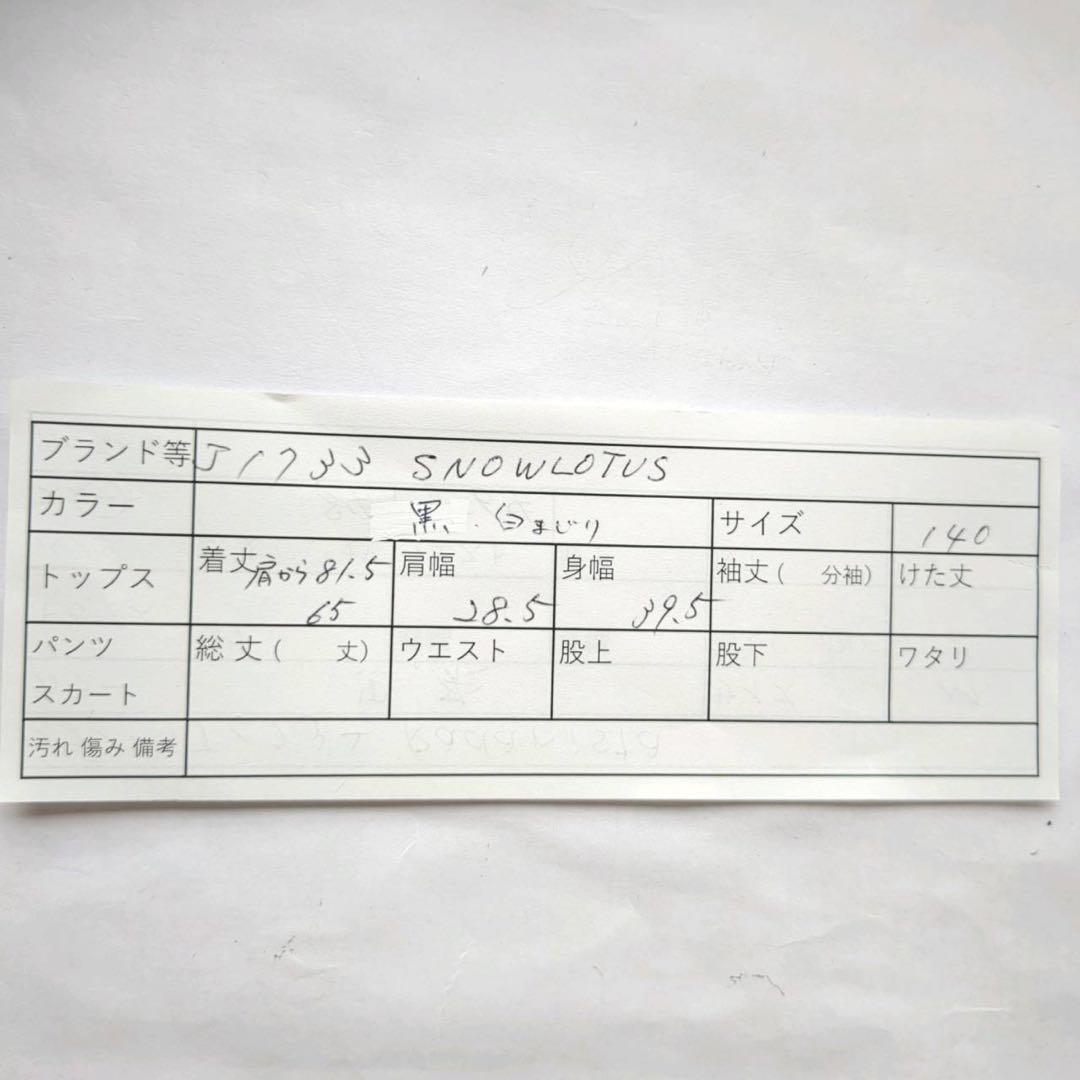 ブランド等 J1733 SNOWLOTUS
カラー 黒.白まじり サイズ 140
トップス 着丈 肩から81.5 肩幅 身幅 袖丈( 分袖) けた丈
65 28.5 39.5
パンツ 総丈( 丈) ウエスト 股上 股下 ワタリ
スカート
汚れ 傷み 備考